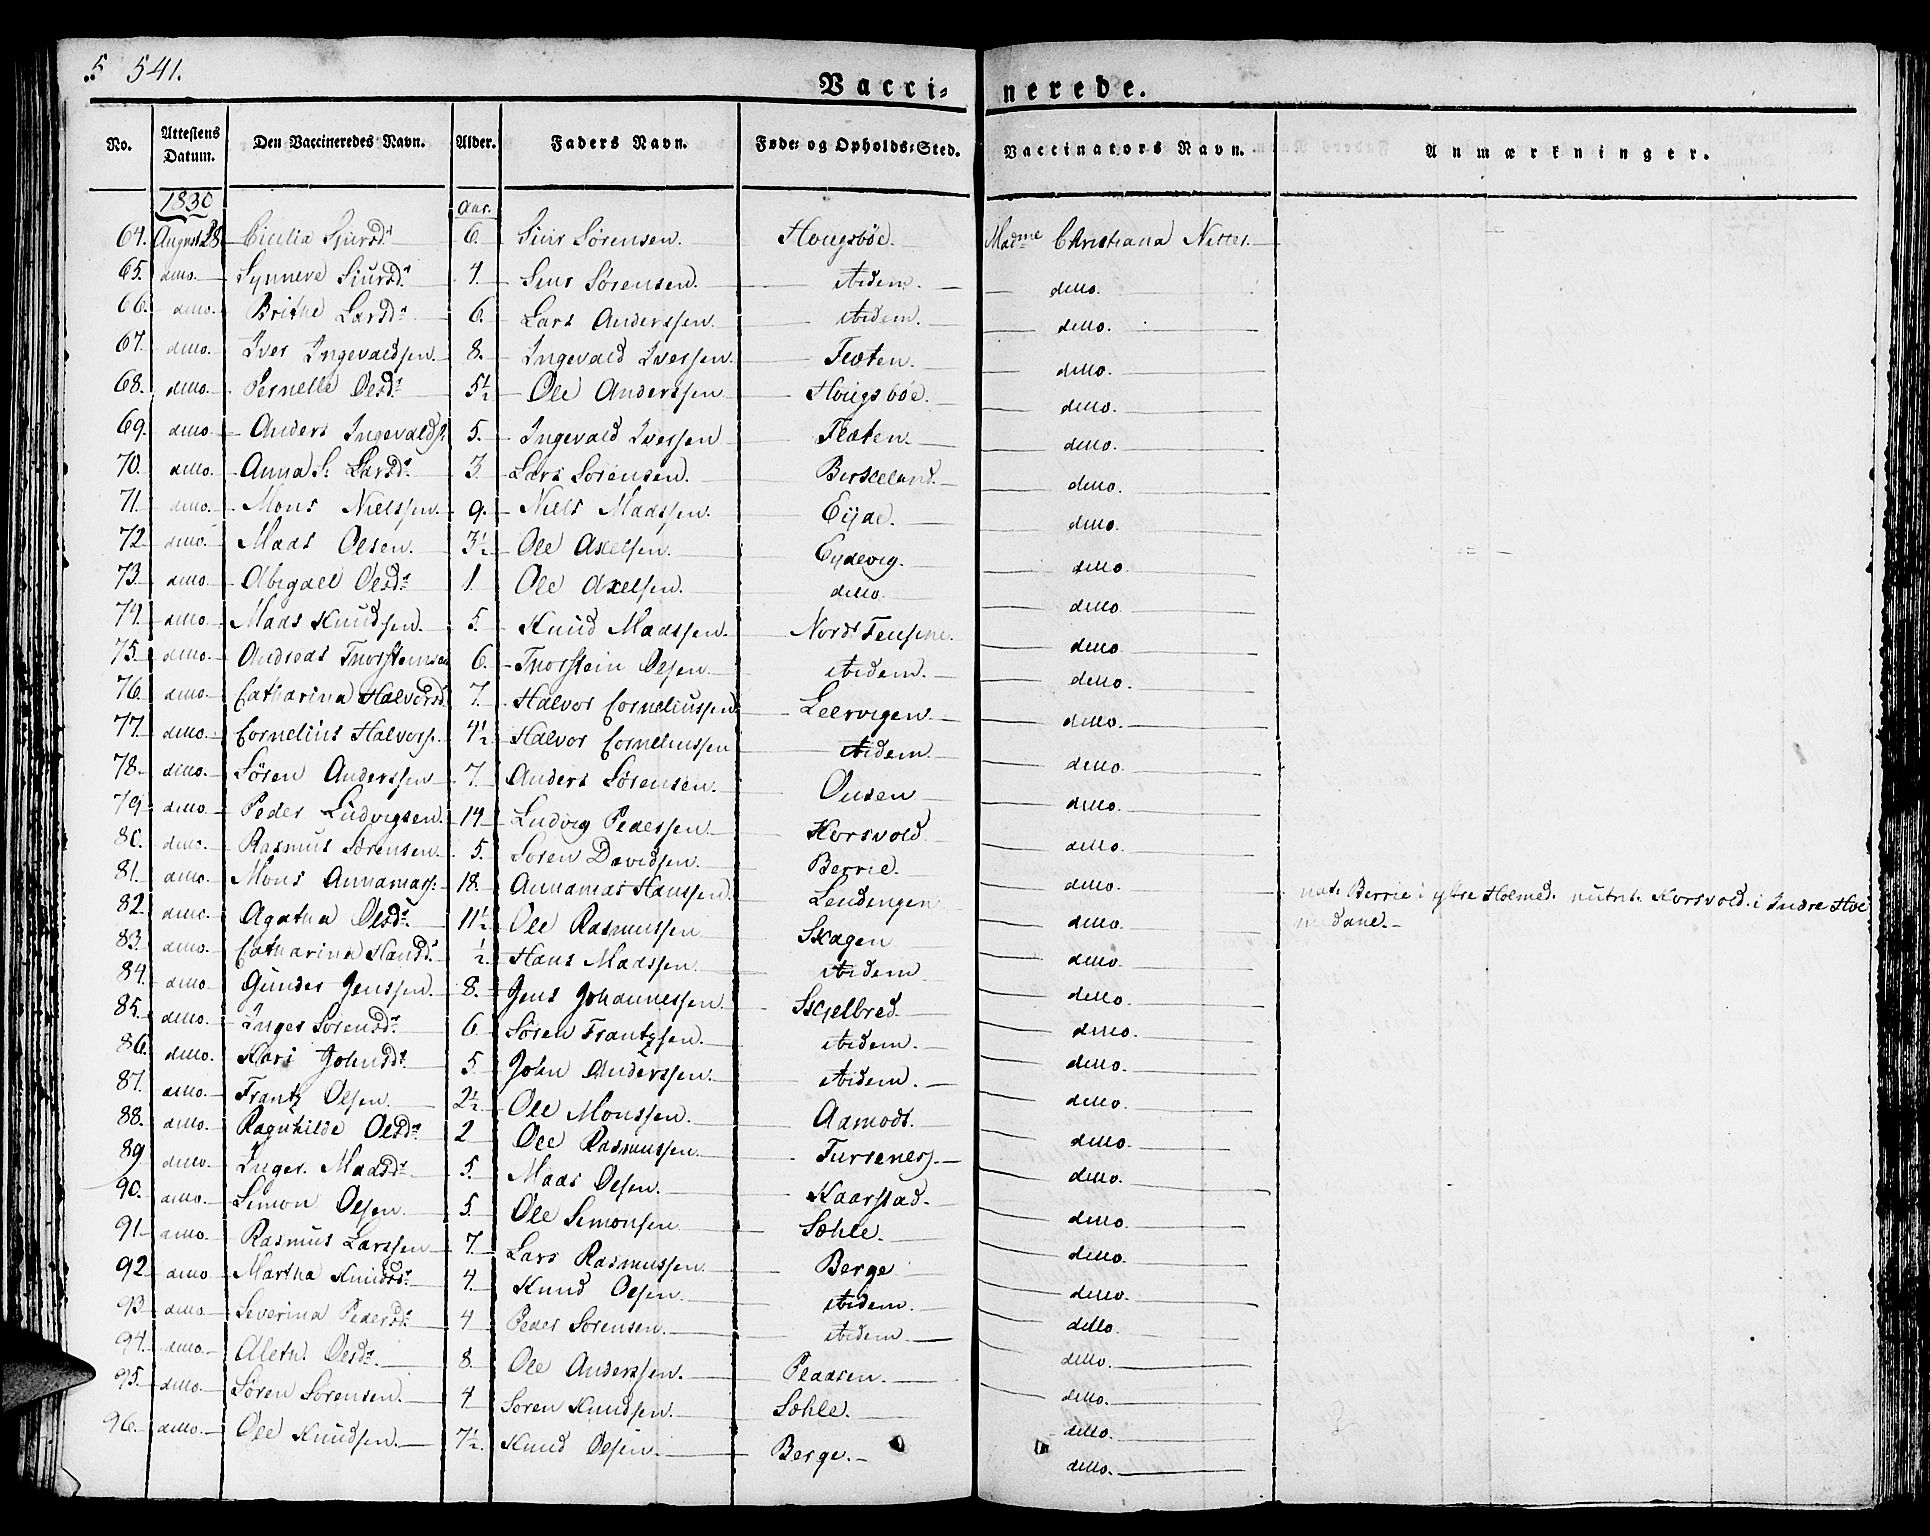 5 541.
Vacci= nerede.
No. Attestens Datum. Den Vaccineredes Navn. Alder. Faders Navn. Føde- og Opholds-Sted. Vaccinators Navn. Anmærkninger.
1830 Aar.
64. August 28. Cicilia Sjursd. 6. Siur Sørensen. Hougsbøe. Madme Christiana Nitter.
65. ditto. Synneve Siursdr 4. Siur Sørensen. ibidem. ditto.
66. ditto. Brithe Larsdr 6. Lars Anderssen. ibidem. ditto.
67. ditto. Iver Ingevaldsen. 8. Ingevald Iverssen. Fløten. ditto.
68. ditto. Pernelle Olsdr 5½ Ole Anderssen Hougsbøe. ditto.
69. ditto Anders Ingevalds. 5. Ingevald Iverssen Fløten. ditto.
70. ditto. Anna S. Larsdr 3 Lars Sørensen. Birkeland. ditto.
71. ditto. Mons Nielssen. 9. Niels Madssen. Eyde. ditto.
72. ditto. Mads Olsen. 3½ Ole Axelsen. Eydevig. ditto.
73. ditto Abigael Olsdr 1 Ole Axelsen. ditto. ditto.
74. ditto. Mads Knudsen. 5. Knud Madssen. Nordr ditto.
75. ditto. Andreas Thorsteinsen 6. Thorstein Olsen. ibidem. ditto.
76. ditto. Catharina Halvorsd. 7. Halvor Corneliussen Leervigen. ditto.
77. ditto. Cornelius Halvors. 4½ Halvor Corneliussen ibidem. ditto.
78. ditto. Søren Anderssen 7. Anders Sørensen. Ousen ditto.
79 ditto. Peder Ludvigsen. 14 Ludvig Pederssen. Korsvold ditto.
80. ditto. Rasmus Sørensen. 5. Soren Davidsen. Berrie. ditto.
81. ditto. Mons Annanias. 18. Annanias Hanssen. Lendingen ditto. nat. Berrie i ytre Holmed. nutrit. Korsvold i Indre Hol
82. ditto. Agatha Olsdr 11½ Ole Rasmussen Skagen ditto. medane.
83. ditto. Catharina Hansdr ½ Hans Madssen. ibidem ditto.
84. ditto Gunder Jenssen. 8. Jens Johannessen. Skjelbred. ditto.
85. ditto. Inger Sørensdr 6 Søren Frantzsen. ibidem. ditto.
86. ditto. Kari Johnsdr 5 John Anderssen. ibidem. ditto.
87. ditto. Frantz Olsen. 2½ Ole Monssen. Aamodt. ditto.
88. ditto. Ragnhilde Olsdr 2 Ole Rasmussen. ditto.
89 ditto. Inger. Madsdr 5. Mads Olsen. Kaarstad. ditto.
90. ditto. Simon Olsen. 5. Ole Simonsen Søhle. ditto.
91. ditto. Rasmus Larssen 7. Lars Rasmussen. Berge ditto.
92 ditto Martha Knudsdr 4. Knud Olsen. ibidem. ditto.
93 ditto. Severina Pedersdr 4 Peder Sørensen. ibidem. ditto.
94. ditto. Aleth. Olsdr 8. Ole Anderssen. Pladsen. ditto.
95. ditto. Søren Sørensen. 4 Søren Knudsen. Søhle. ditto.
96. ditto. Ole Knudsen. 7½. Knud Olsen. Berge. ditto.
ditto.